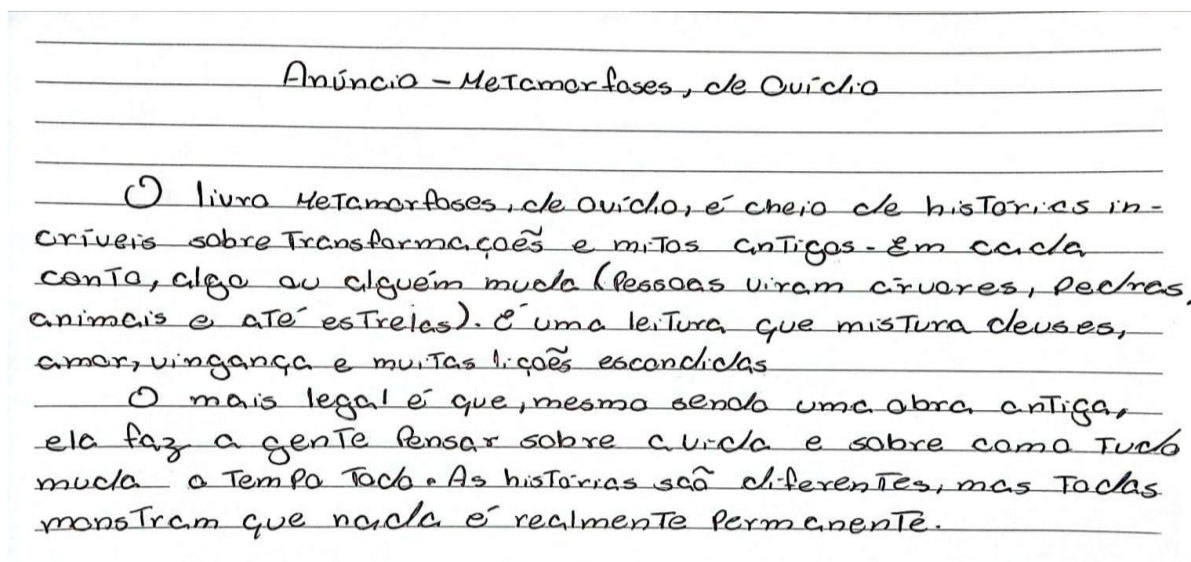 Anúncio - Metamorfoses, de Ovídio
O livro Metamorfoses, de Ovídio, é cheio de histórias in-
críveis sobre transformações e mitos antigos. Em cada
conto, algo ou alguém muda (pessoas viram árvores, pedras,
animais e até estrelas). É uma leitura que mistura deuses,
amor, vingança e muitas lições escondidas
O mais legal é que, mesmo sendo uma obra antiga,
ela faz a gente pensar sobre a vida e sobre como tudo
muda o tempo todo. As histórias são diferentes, mas todas
monstram que nada é realmente permanente.